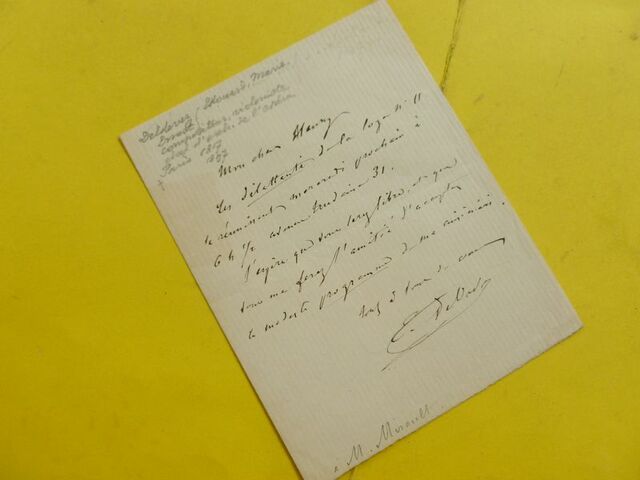 Deldevez Édouard, Marie,
Ernest
compositeur, violoniste
chef d'orch. de l'opéra
Paris 1817
+ 1897
Mon cher Henry
Les dilettanti de la loge n. 11
se réunissent mercredi prochain à
6 h ½ avenue Trudaine 31.
J'espère que vous serez libre, et que
vous me ferez l'amitié d'accepter
le modeste programme de ma cuisinière.
Tout à vous de cœur
E. Deldevez
à M. Mirault